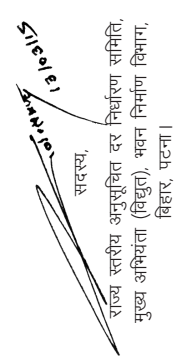 13/03/15
सदस्य,
राज्य स्तरीय अनुसूचित दर निर्धारण समिति,
मुख्य अभियंता (विद्युत), भवन निर्माण विभाग,
बिहार, पटना।